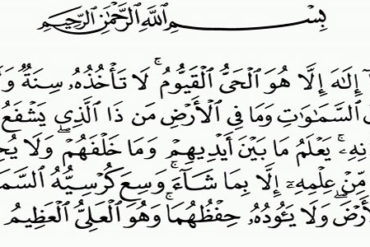 بِسْمِ اللَّهِ الرَّحْمَٰنِ الرَّحِيمِ
إِلَٰهَ إِلَّا هُوَ الْحَيُّ الْقَيُّومُ ۚ لَا تَأْخُذُهُ سِنَةٌ وَ
السَّمَاوَاتِ وَمَا فِي الْأَرْضِ مَن ذَا الَّذِي يَشْفَعُ
نِهِ ۚ يَعْلَمُ مَا بَيْنَ أَيْدِيهِمْ وَمَا خَلْفَهُمْ ۖ وَلَا يُحِ
مِّنْ عِلْمِهِ إِلَّا بِمَا شَاءَ ۚ وَسِعَ كُرْسِيُّهُ السَّمَ
أَرْضَ ۖ وَلَا يَئُودُهُ حِفْظُهُمَا ۚ وَهُوَ الْعَلِيُّ الْعَظِيمُ